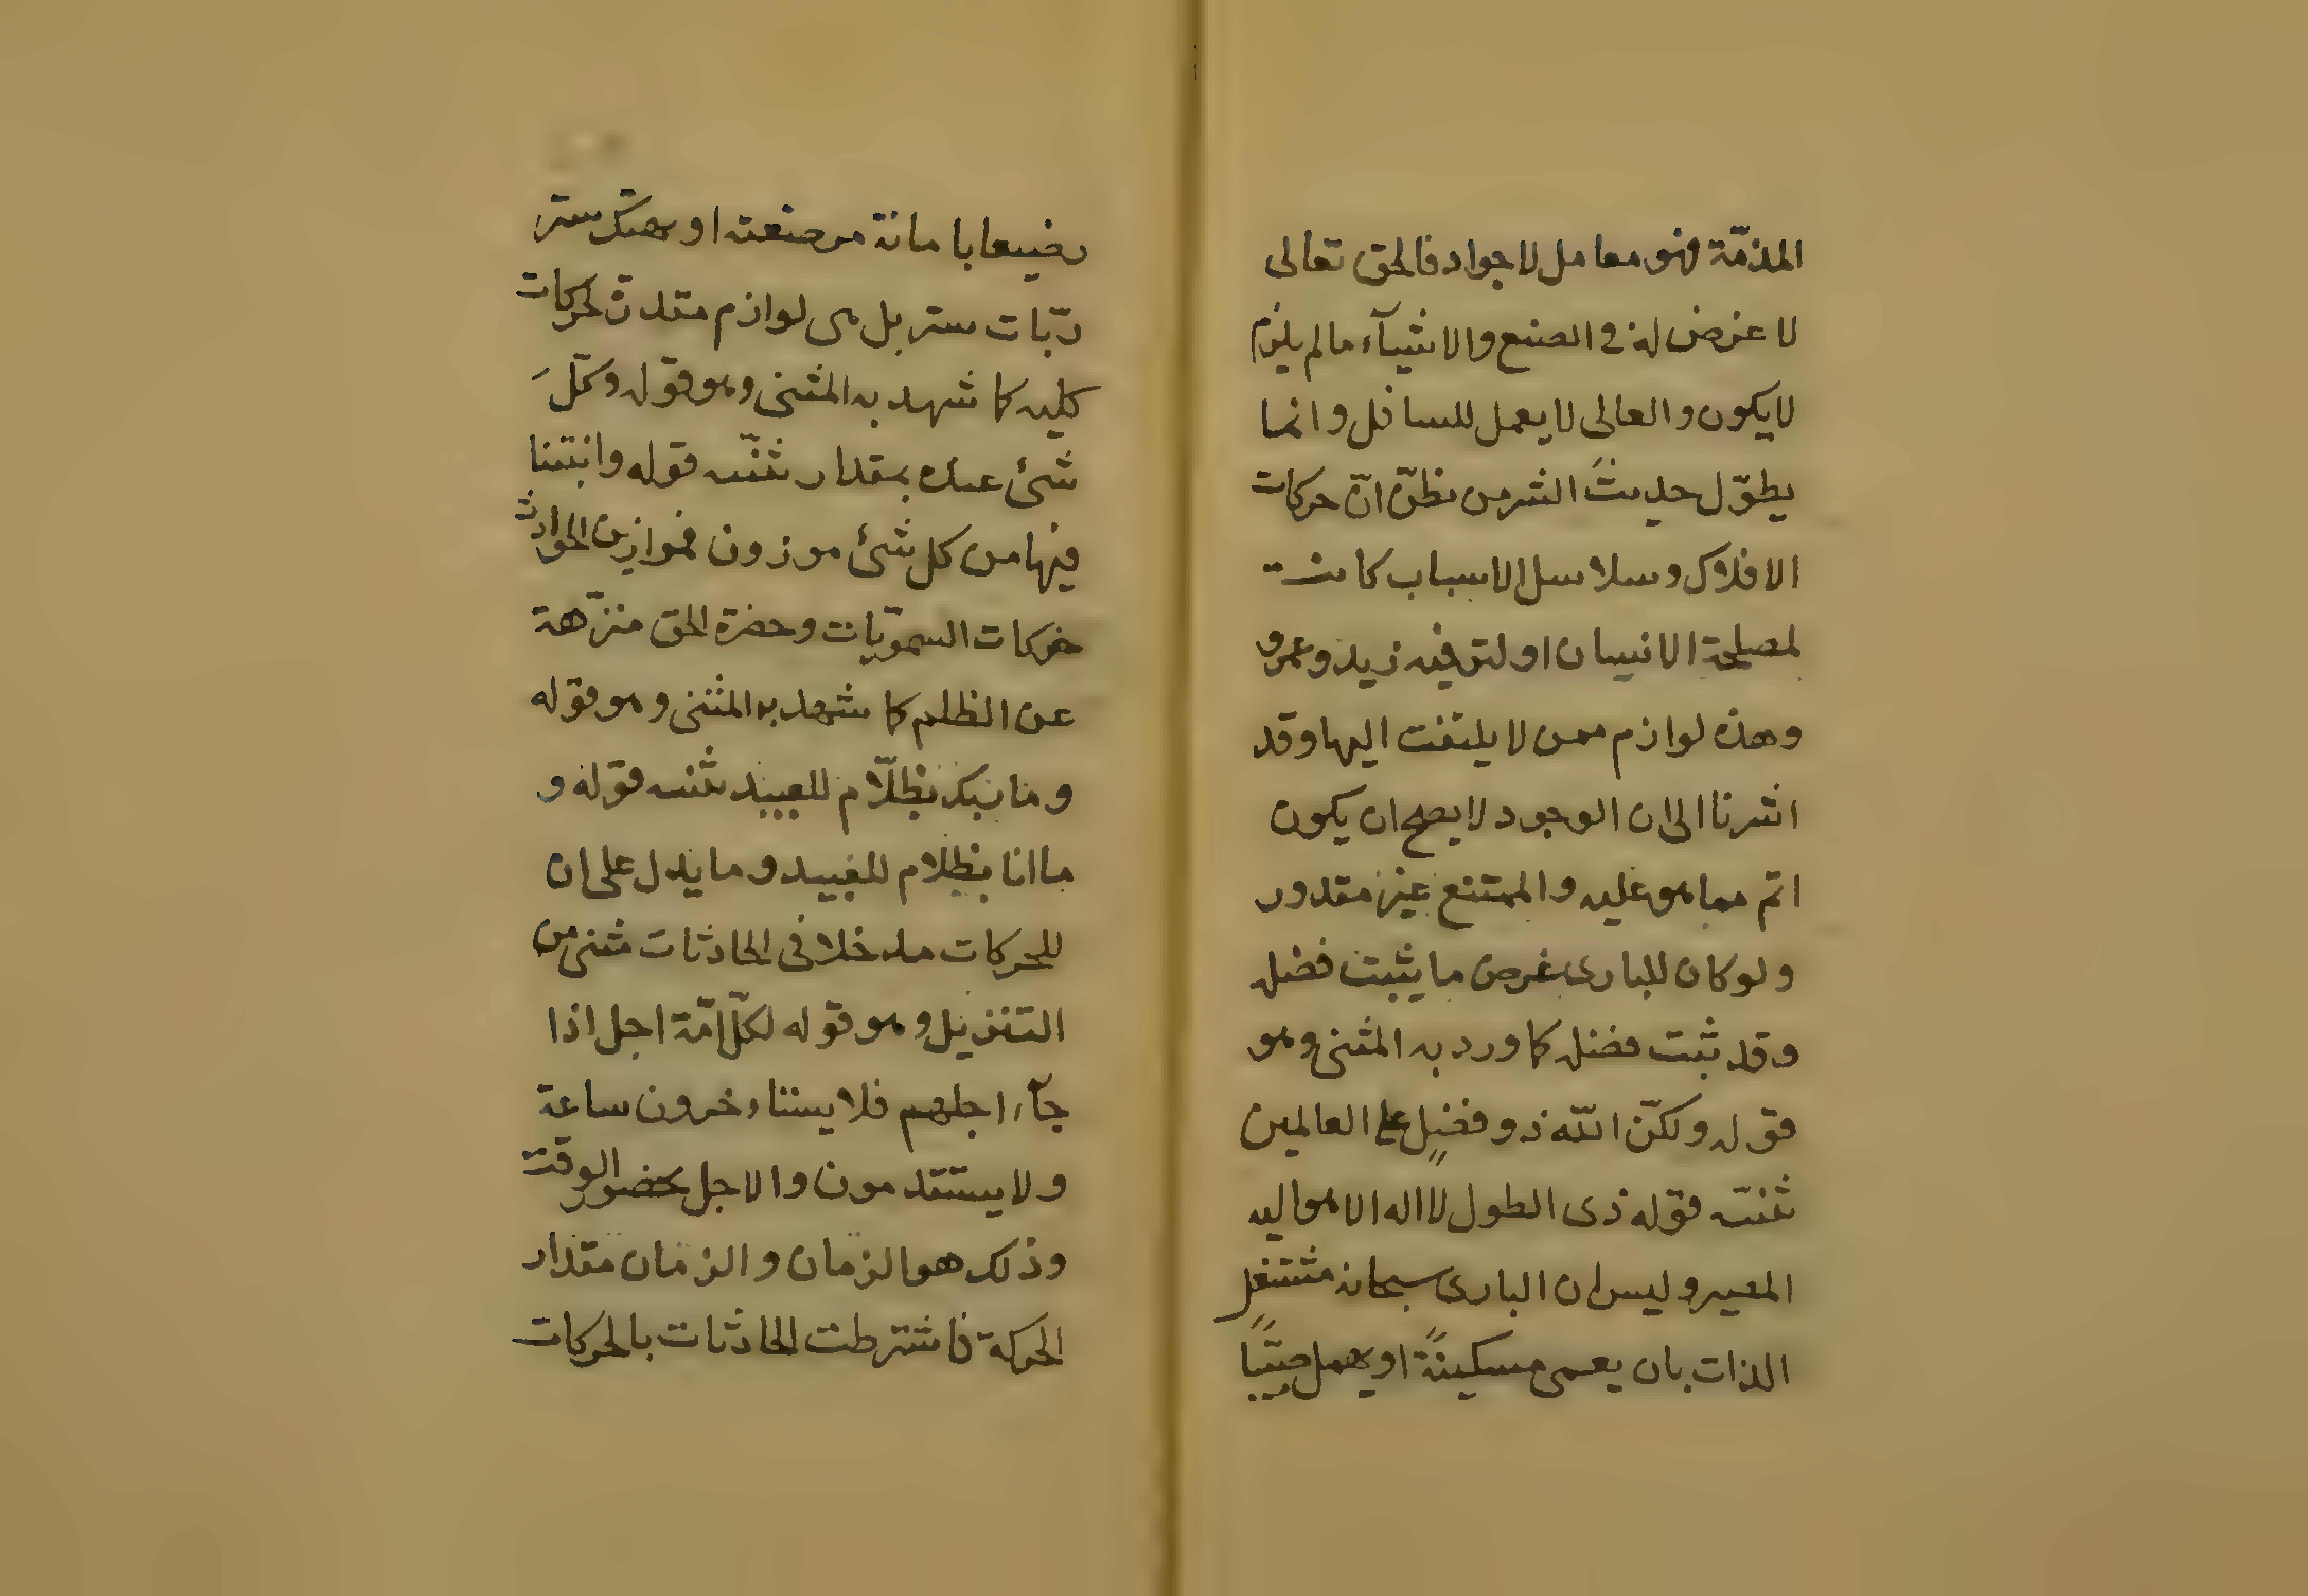 المذمّة فهو معامل لا جواد فالحق تعالى
لا غرض له فى الصنع والاشيآء ما لم يلزم
لا يكون والعالى لا يعمل للسافل وانما
يطوّل حديثَ الشر من يظنّ انّ حركات
الافلاك وسلاسل الاسباب كانت
لمصلحة الانسان او لترفيه زيد وعمرو
وهذه لوازم ممن لا يلتفت اليها وقد
اشرنا الى ان الوجود لا يصح ان يكون
اتم مما هو عليه والممتنع غير مقدور
ولو كان للبارى غرض ما يثبت فضله
وقد ثبت فضله كما ورد به المثنى وهو
قوله ولكنّ الله ذو فضلٍ على العالمين
ثنته قوله ذى الطول لا اله الا هو اليه
المصير وليس ان البارى سبحانه مشتغل
الذات بان يعمى مسكينةً او يهمل صبّيا
رضيعا بامانة مرضعته او بهتك ستر
ربّات ستر بل هى لوازم مقدرة لحركات
كليه كما شهد به المثنى وهو قوله وكلّ
شئ عنده بمقدار ثنّته قوله وانبتنا
فيها من كل شئ موزون فموازين الحوادث
حركات السمويّات وحضرة الحق منزّهة
عن الظلم كما شهد به المثنى وهو قوله
وما ربك بظلّام للعبيد ثنته قوله و
ما انا بظلام للعبيد وما يدل على ان
للحركات مدخلا فى الحادثات مثنى من
التنزيل وهو قوله لكلّ امّة اجل اذا
جآء اجلهم فلا يستاءخرون ساعة
ولا يستقدمون والاجل بحضور الوقت
وذلك هو الزمان والزمان مقدار
الحركة فاشترطت الحادثات بالحركات